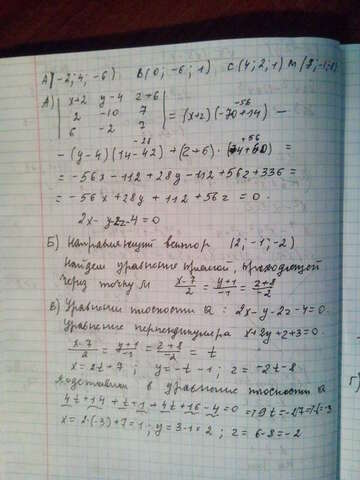 A(-2; 4; -6) B(0; -6; 1) C(4; 2; 1) M(7; -1; -8)
А) | x+2 y-4 z+6 |
| 2 -10 7 | = (x+2)(-70+14) -
| 6 -2 7 |
-56
- (y-4)(14-42) + (z+6)·(-4+60) =
-28 +56
= -56x-112+28y-112+56z+336 =
= -56x+28y+112+56z=0.
2x-y-2z-4=0
Б) Направляющий вектор (2; -1; -2)
Найдем уравнение прямой, проходящей
через точку M x-7/2 = y+1/-1 = z+8/-2
в) Уравнение плоскости Q: 2x-y-2z-4=0.
Уравнение перпендикуляра x+2y+z+3=0.
x-7/2 = y+1/-1 = z+8/-2 = t
x=2t+7; y=-t-1; z=-2t-8
Подставим в уравнение плоскости Q
4t+14+t+1+4t+16-4=0 ⇒ 9t=-27 ⇒ t=-3
x=2·(-3)+7=1; y=3-1=2; z=6-8=-2